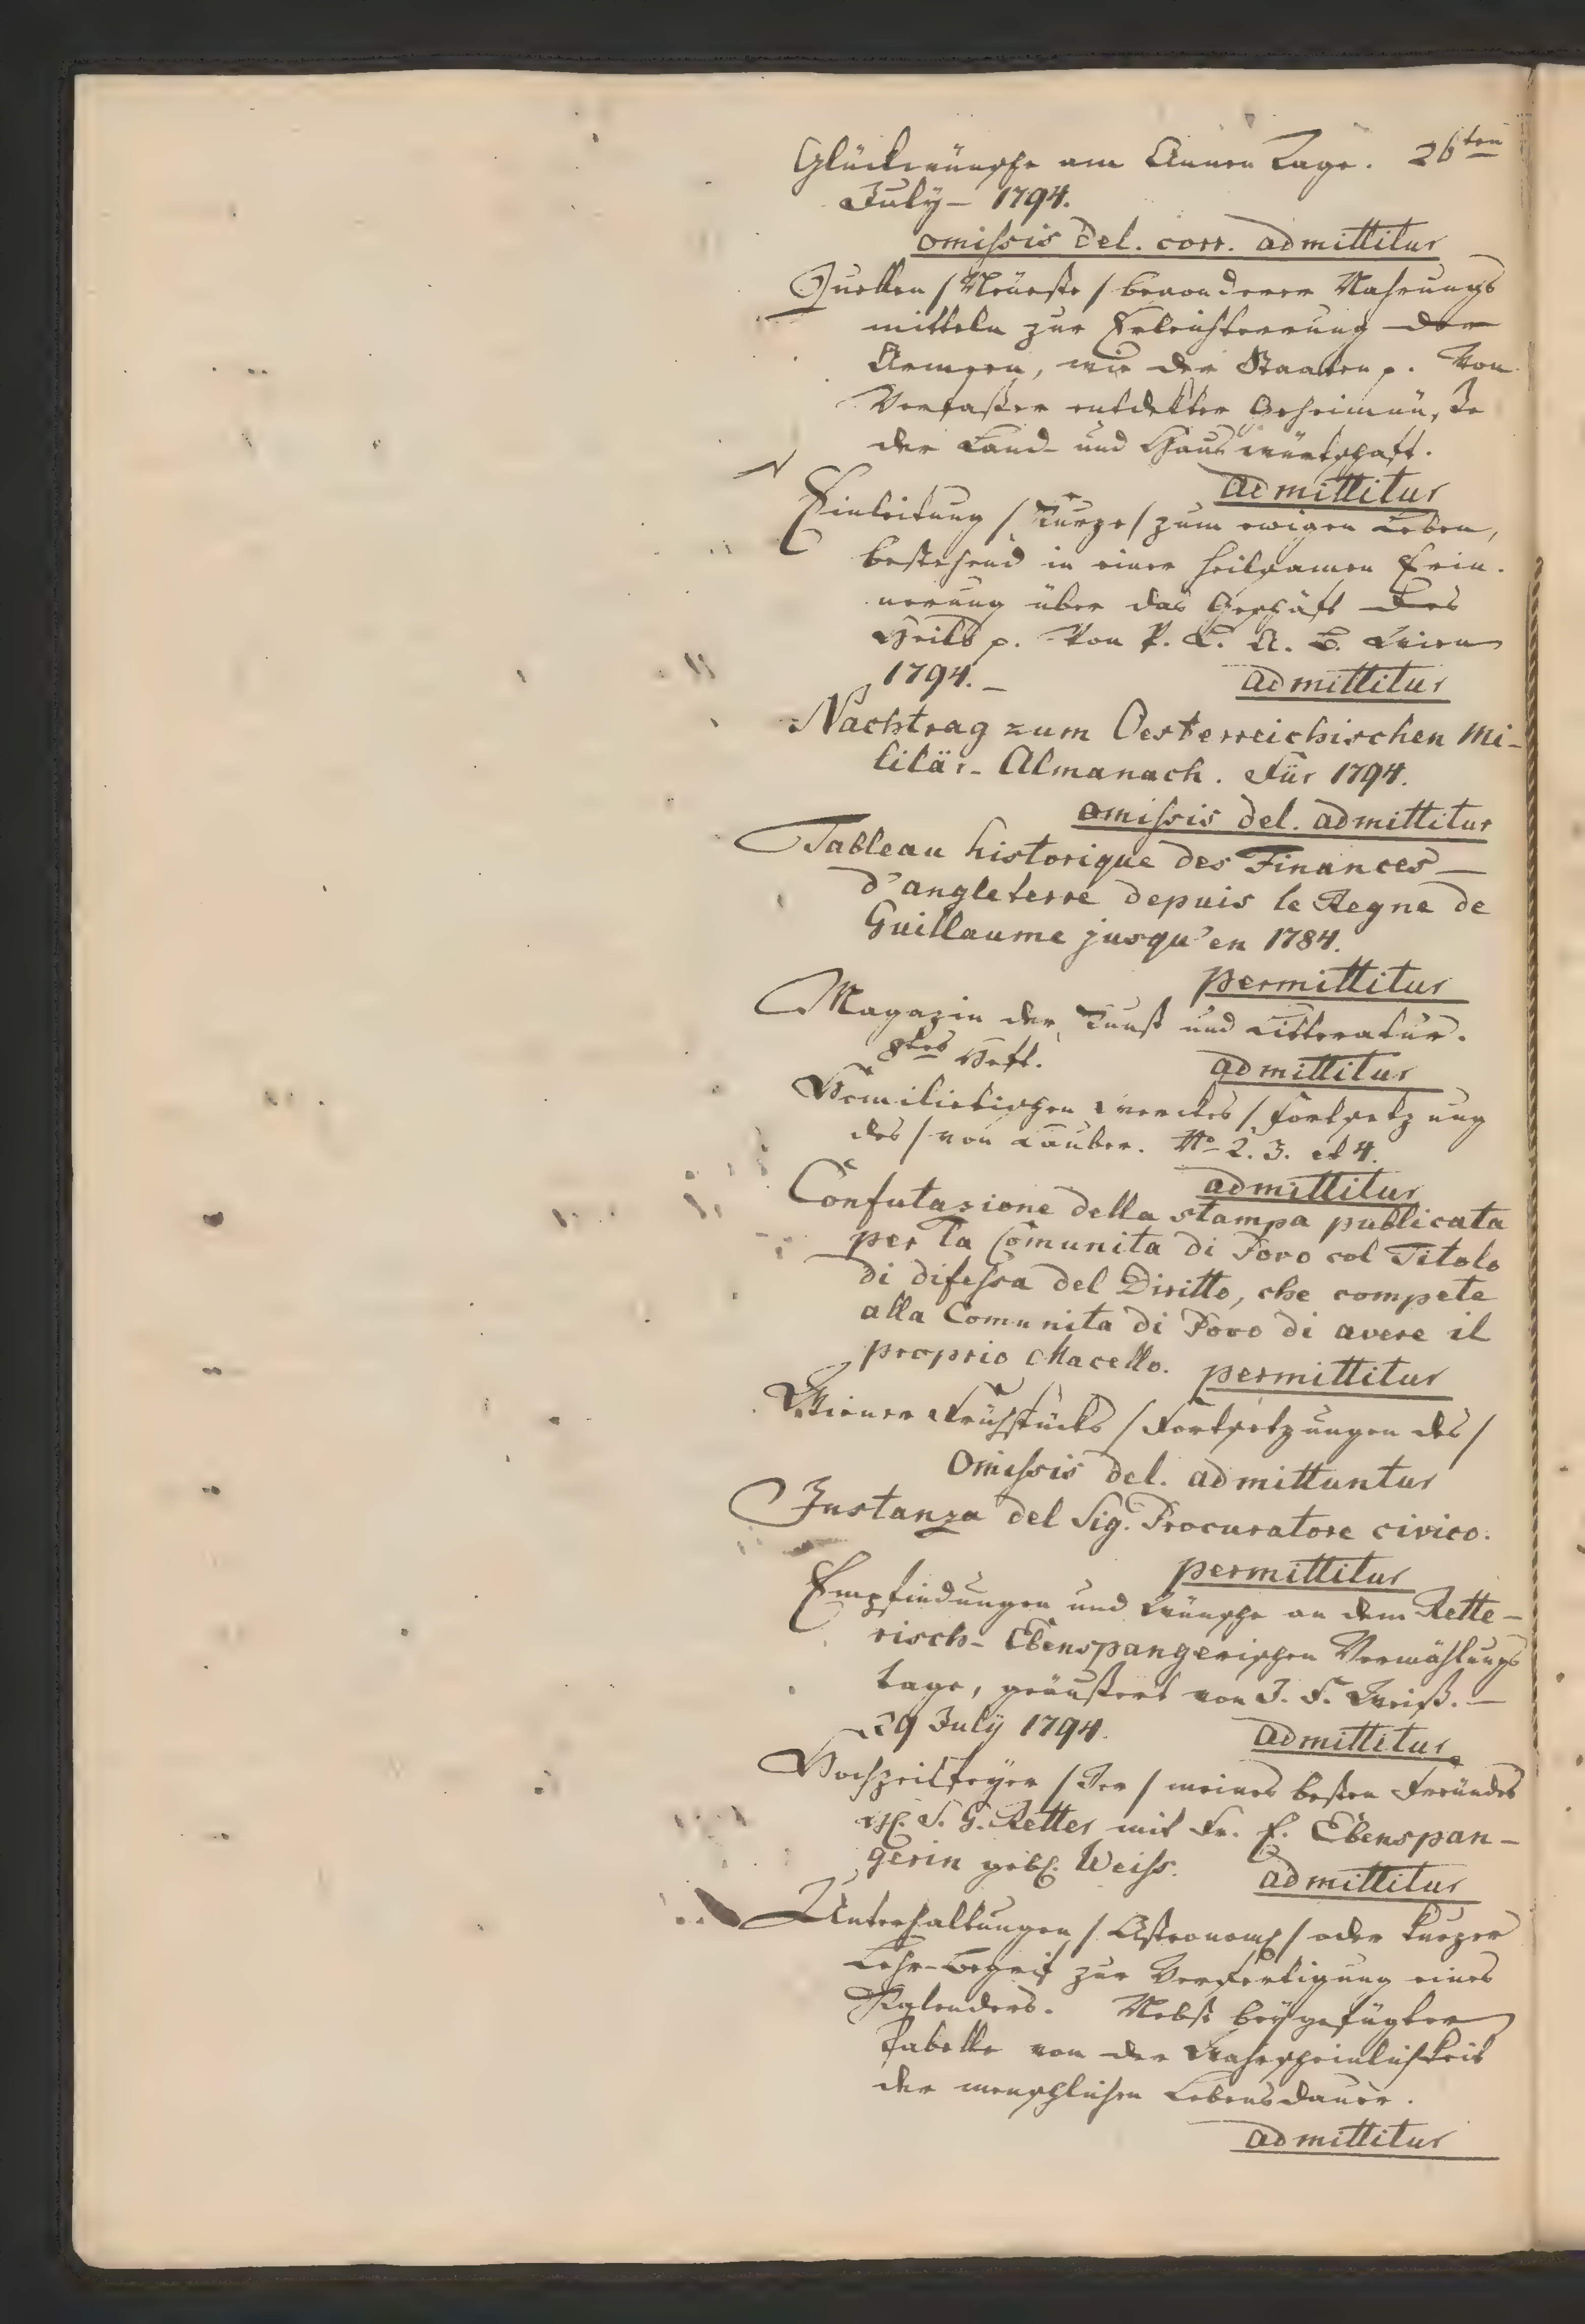 Glückwünsche am Annen Tage. 26ten
July – 1794.
omissis del. corr. admittitur
Quellen / Neueste / besonderer Nahrungs
mitteln zur Erleichterung der
Armen, wie der Staaten p. Vom
Verfasser entdekter Geheimnüße
der Land- und Hauswürtschaft.
admittitur
Einleitung / Kurze / zum ewigen Leben,
bestehend in einer heilsamen Erin-
nerung über das Geschäft des
Heils p. Von P. L. A. B. Wien
1794. – admittitur
Nachtrag zum Oesterreichischen Mi-
litär- Almanach. Für 1794.
omissis del. admittitur
Tableau historique des Finances –
d'angleterre depuis le Regne de
Guillaume jusqu'en 1784.
permittitur
Magazin der Kunst und Litteratur.
8tes Heft. admittitur
Homiletischen Werckes / Fortsetzung
des / von Lauber. No 2. 3. et 4.
admittitur
Confutazione della stampa publicata
per la Comunita di Povo col Titolo
di difessa del Diritto, che compete
alla Comunita di Povo di avere il
proprio Macello. permittitur
Wiener Frühstücks / Fortsetzungen des /
Omissis del. admittuntur
Instanza del Sig. Procuratore civico.
permittitur
Empfindungen und Wünsche an dem Rette-
risch- Ebenspangerischen Vermählungs
tage, geäußert von J. F. Weiß. –
29 July 1794. admittitur
Hochzeitfeyer / Zur / meines besten Freundes
H. S. G. Retter mit Fr. E. Ebenspan-
gerin geb. Weiss. admittitur
Unterhaltungen / Astronom / oder kurzer
Lehr-begrif zur Verfertigung eines
Kalenders. Nebst beygefügter
Tabelle von der Wahrscheinlichkeit
der menschlichen Lebensdauer.
admittitur